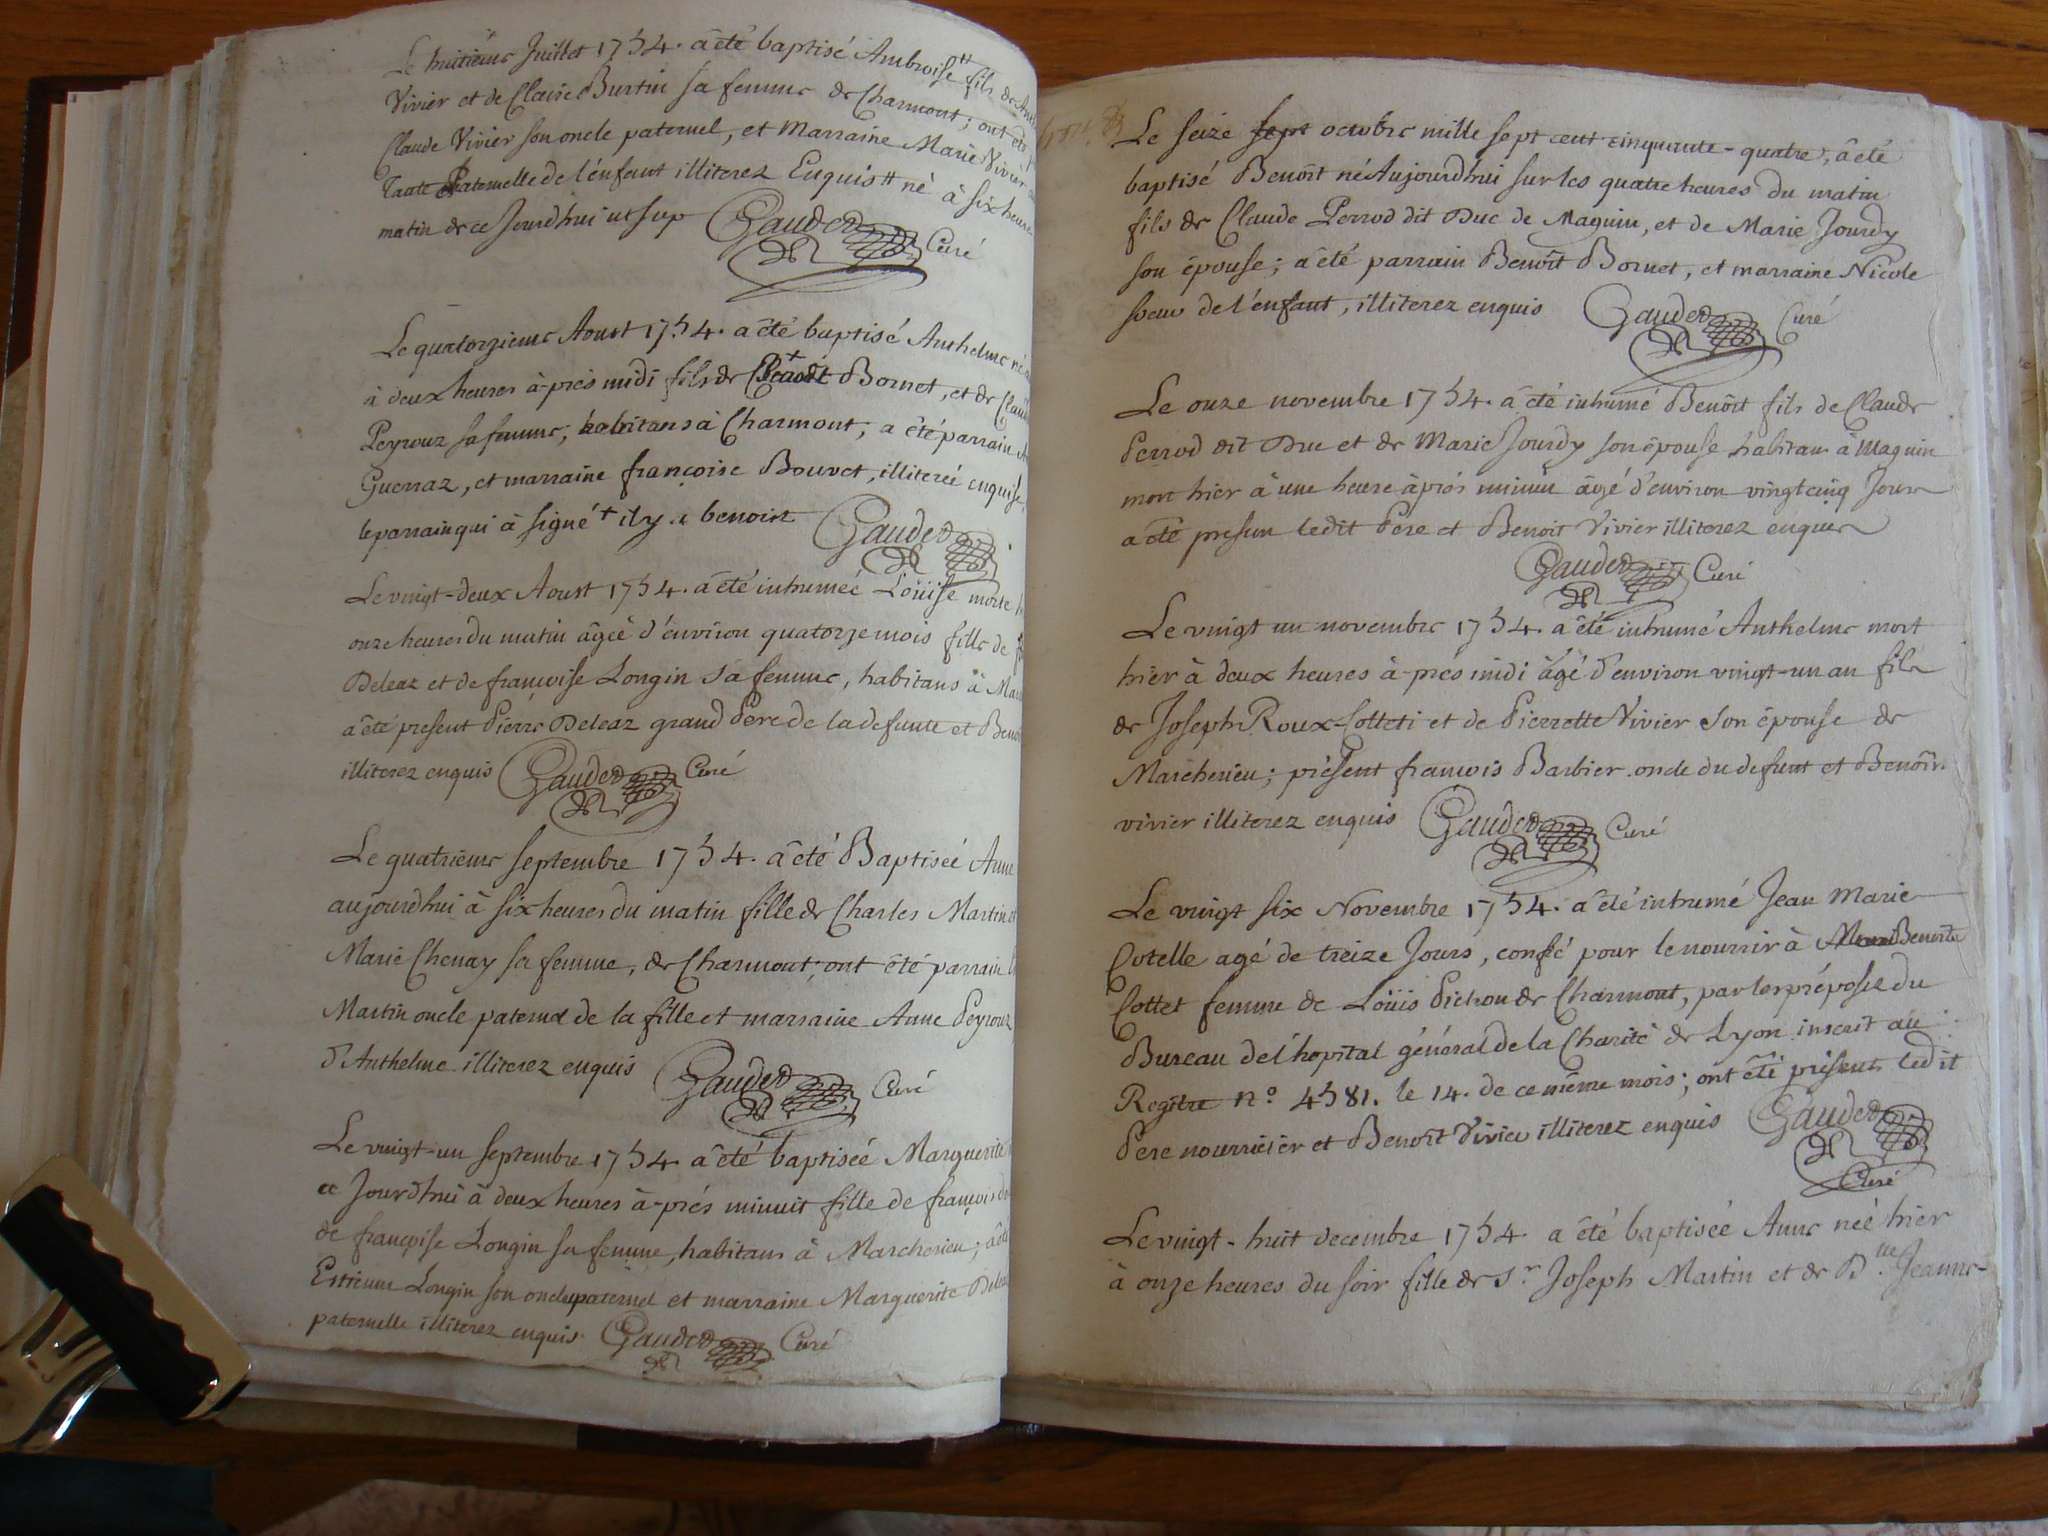 Le huitiême Juillet 1754. a êté baptisé Ambroise # fils de
Vivier et de Claire Burtin sa femme de Charmont; ont été
Claude Vivier son oncle paternel, et Marraine Marie Vivier
Tante Paternelle de l'enfant illiterez Enquis # né à six heures
matin de ce Jourd'hui ut sup Gaudet Curé
Le quatorzieme Aoust 1754. a êté baptisé Anthelme né
à deux heures à-prés midi fils de + Bornet, et de
Peyrouz sa femme, habitans à Charmont; a êté parrain
Guerraz, et marraine françoise Bouvet, illitereé enquise,
le parrain qui à signé + il y a benoist Gaudet
Le vingt-deux Aoust 1754. a été inhumeé Loüise morte
onze heures du matin âgeé d'environ quatorze mois fille de
Deleaz et de françoise Longin sa femme, habitans à
a êté present Pierre Deleaz grand Pere de la defunte et
illiterez enquis Gaudet Curé
Le quatriême septembre 1754. a été Baptiseé Anne
aujourdhui à six heures du matin fille de Charles Martin et
Marie Chenay sa femme, de Charmont; ont êté parrain
Martin oncle paternel de la fille et marraine Anne Peyrouz
d'Anthelme illiterez enquis Gaudet Curé
Le vingt-un septembre 1754 a été baptiseé Marguerite
ce Jourd'hui à deux heures à-prés minuit fille de françois
de françoise Longin sa femme, habitans à Marcherieu; a été
Estienne Longin son oncle paternel et marraine Marguerite
paternelle illiterez enquis. Gaudet Curé
Le seize sept octobre mille sept cent cinquante-quatre, a êté
baptisé Benôit né Aujourd'hui sur les quatre heures du matin
fils de Claude Perrod dit Duc de Magnin, et de Marie Jourdy
son êpouse; a êté parrain Benôit Bornet, et marraine Nicole
soeur de l'enfant, illiterez enquis Gaudet Curé
Le onze novembre 1754. a été inhumé Benôit fils de Claude
Perrod dit Duc et de Marie Jourdy son êpouse habitans à Magnin
mort hier à une heure à prés minuit âgé d'environ vingt cinq Jours
a été present ledit Pere et Benoit Vivier illiterez enquis
Gaudet Curé
Le vingt un novembre 1754. a êté inhumé Anthelme mort
hier à deux heures à-prés midi âgé d'environ vingt-un an fils
de Joseph Roux-Colleti et de Pierrette Vivier son êpouse de
Marcherieu; présent francois Barbier oncle du defunt et Benôit
vivier illiterez enquis Gaudet Curé
Le vingt six Novembre 1754. a été inhumé Jean Marie
Cotelle agé de treize Jours, confié pour le nourrir à Benoite
Cottet femme de Loüis Pichon de Charmont, par les préposez du
Bureau de l'hopital général de la Charité de Lyon inscrit au
Regitre n.o 4581. le 14. de ce même mois; ont êté présents ledit
Pere nourricier et Benoît Vivier illiterez enquis Gaudet
Curé
Le vingt-huit decembre 1754. a êté baptiseé Anne neé hier
à onze heures du soir fille de S.r Joseph Martin et de D.lle Jeanne-